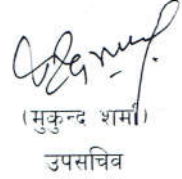 (मुकुन्द शर्मा)
उपसचिव